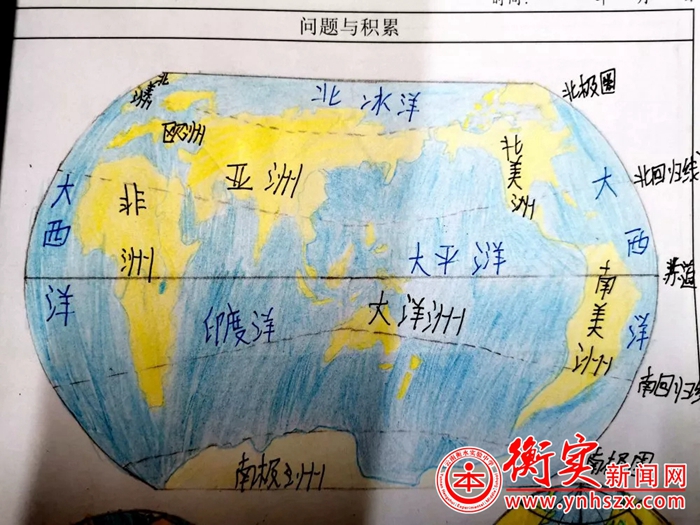 问题与积累
北
北冰洋
北极圈
欧洲
亚洲
非洲
北美洲
大西洋
大西洋
北回归线
太平洋
赤道
印度洋
大洋洲
南美洲
南回归线
南极洲
南极圈
衡实新闻网
www.ynhszx.com